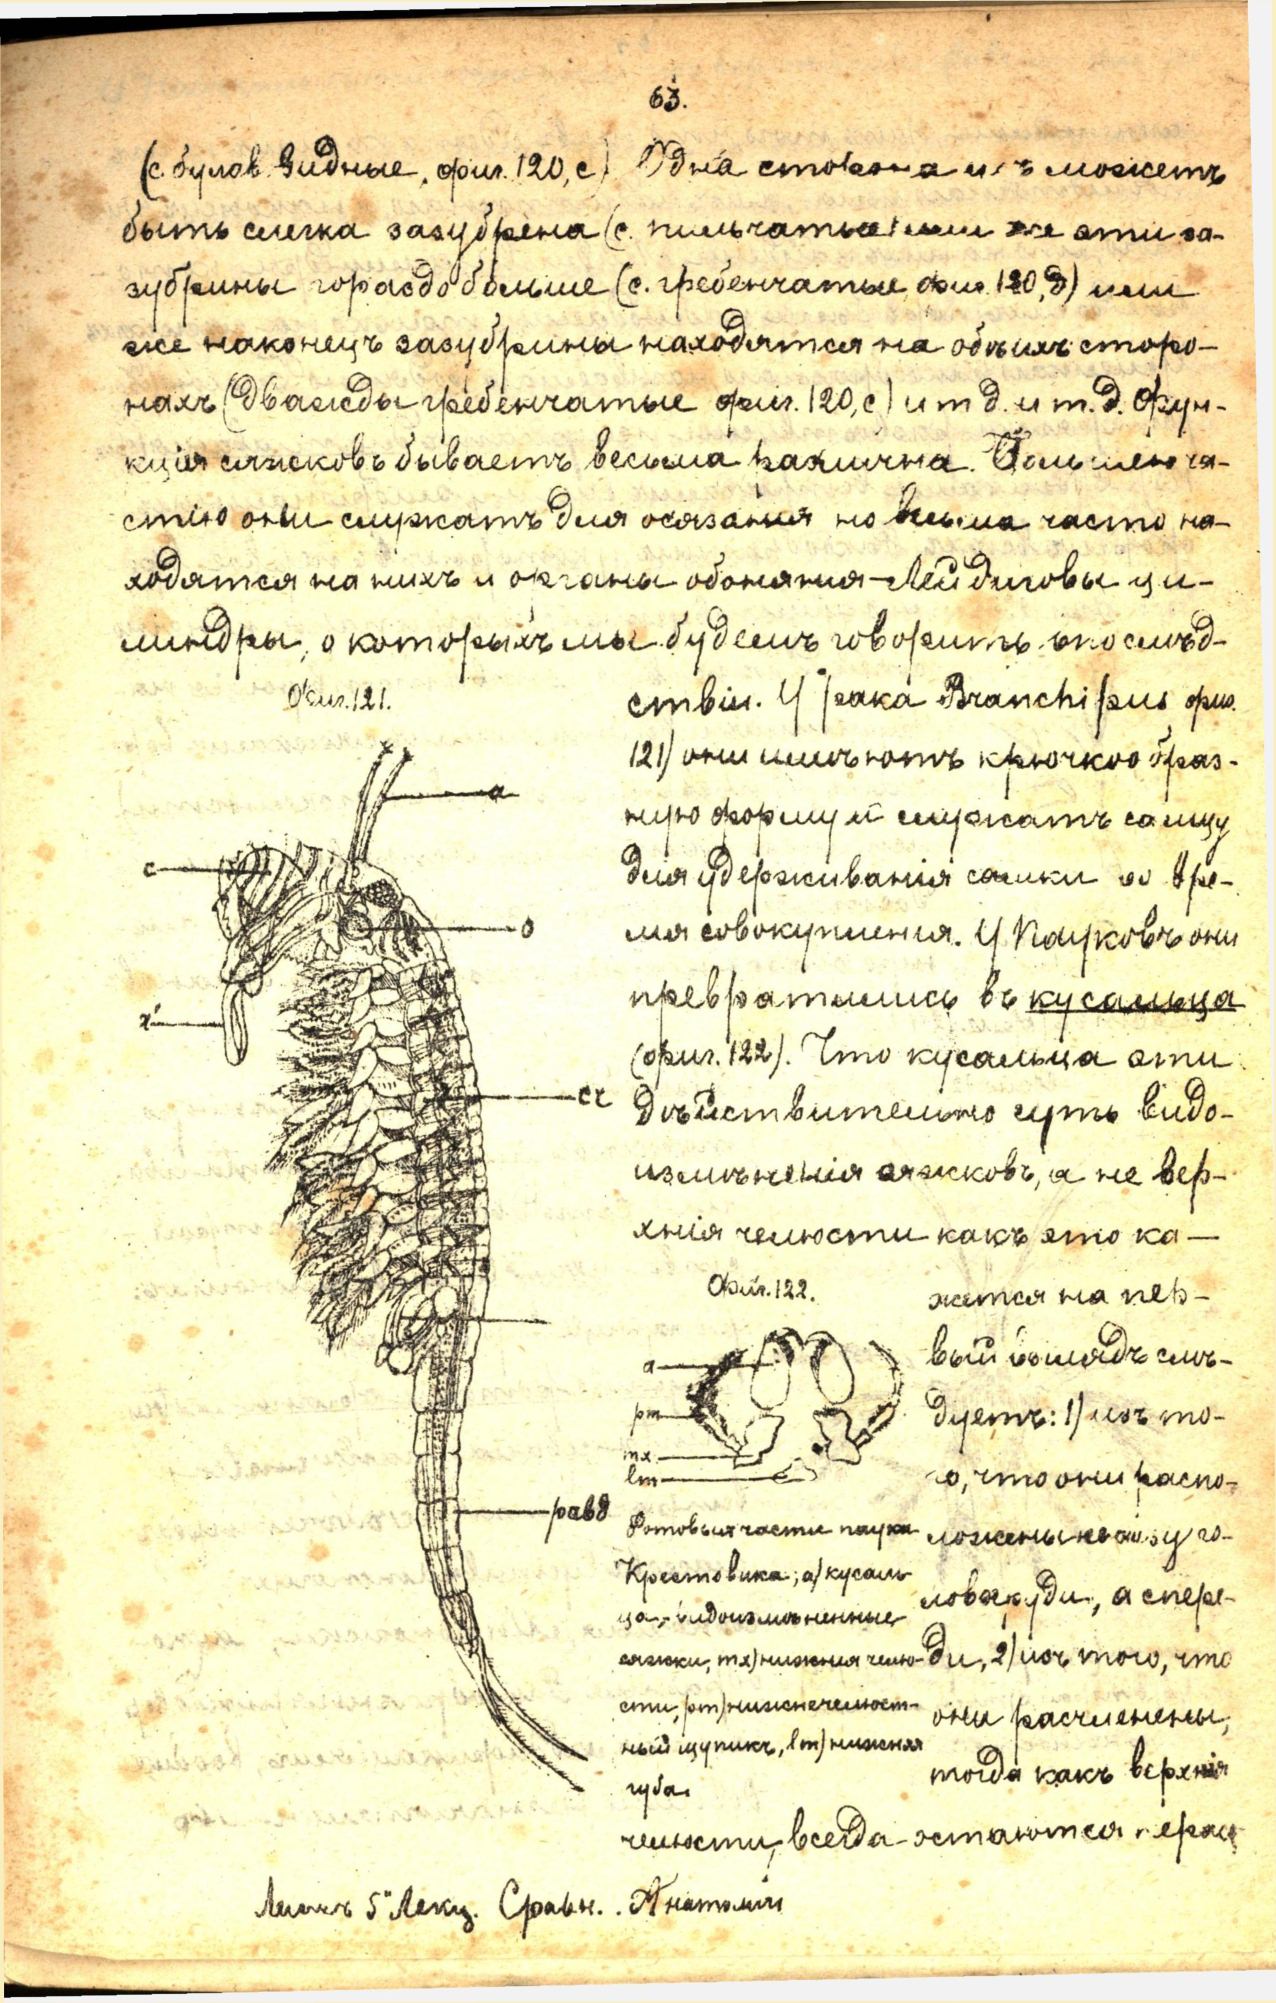 63.
(с. булавовидные, фиг. 120, с) Одна сторона ихъ можетъ
быть слегка зазубрена (с. пильчатые) или же эти за-
зубрины гораздо больше (с. гребенчатые, фиг. 120, д) или
же наконецъ зазубрины находятся на обѣихъ сторо-
нахъ (дважды гребенчатые фиг. 120, е) и т. д. и т. д. Фун-
кція сяжковъ бываетъ весьма различна. Большею ча-
стію они служатъ для осязанія но весьма часто на-
ходятся на нихъ и органы обонянія - Лейдиговы ци-
линдры, о которыхъ мы будемъ говорить впослѣд-
ствіи. У рака Branchipus фиг.
121) они имѣютъ крючкообраз-
ную форму и служатъ самцу
для удерживанія самки во вре-
мя совокупленія. У Пауковъ они
превратились въ кусальца
(фиг. 122). Что кусальца эти
дѣйствительно суть видо-
измѣненія сяжковъ, а не вер-
хнія челюсти какъ это ка-
жется на пер-
вый взглядъ слѣ-
дуетъ: 1) изъ то-
го, что они распо-
ложены не сзади го-
ловы, а спере-
ди, 2) изъ того, что
они расчленены,
тогда какъ верхнія
челюсти, всегда остаются
Фиг. 121.
а
с
о
х'
сг
равд
Фиг. 122.
а
pm
mx
lm
Ротовыя части паука
Крестовика; а) кусаль-
ца, видоизмѣненные
сяжки, mx) нижнія челю-
сти, pm) нижнечелюст-
ный щупикъ, lm) нижняя
губа.
Листъ 5й Лекц. Сравн. Анатоміи